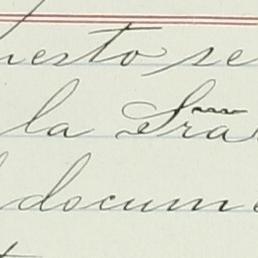 uesto se
la Sra
docum